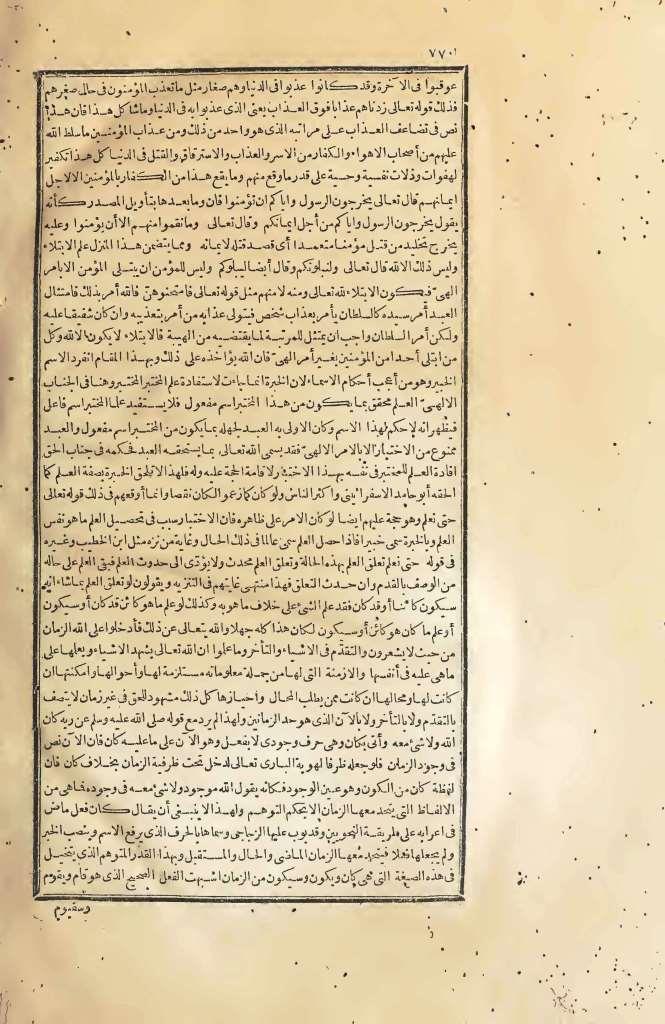 ٧٧٠
عوقبوا فى الآخرة وقد كانوا عذبوا فى الدنيا وهم صغار مثل ما تعذب المؤمنون فى حال صغرهم
فذلك قوله تعالى زدناهم عذابا فوق العذاب يعنى الذى عذبوا به فى الدنيا وما شاكل هذا فان هذا
نص فى تضاعف العذاب على مراتبه الذى هو واحد من ذلك ومن عذاب المؤمنين ما سلط الله
عليهم من أصحاب الاهواء والكفار من الاسر والعذاب والاسترقاق والقتل فى الدنيا كل هذا تكفير
لهفوات وزلات نفسية وحسية على قدر ما وقع منهم وما يقع هذا من الكفار بالمؤمنين الا لاجل
ايمانهم قال تعالى يخرجون الرسول واياكم ان تؤمنوا فان وما بعدها بتأويل المصدر كأنه
يقول يخرجون الرسول واياكم من أجل ايمانكم وقال تعالى وما نقموا منهم الا أن يؤمنوا وعليه
يخرج تخليد من قتل مؤمنا متعمدا أى قصد قتله لايمانه ومما يتضمن هذا المنزل علم الابتلاء
وليس ذلك الا لله قال تعالى ولنبلونكم وقال أيضا ليبلوكم وليس للمؤمن ان يبتلى المؤمن الا بامر
الهىّ فيكون الابتلاء لله تعالى ومنه لا منهم مثل قوله تعالى فامتحنوهنّ فالله أمر بذلك فامتثال
العبد أمر سيده كالسلطان يأمر بعذاب شخص فيتولى عذابه من أمر بتعذيبه وان كان شفيقا عليه
ولكن أمر السلطان واجب ان يمتثل للمرتبة لما يقتضيه من الهيبة فالابتلاء لا يكون الا لله وكل
من ابتلى أحدا من المؤمنين بغير أمر الهىّ فان الله يؤاخذه على ذلك وبهذا المقام انفرد الاسم
الخبير وهو من أعجب أحكام الاسماء لان الخبرة انما جاءت لاستفادة علم المختبر المختبر وهنا فى الجناب
الالهىّ العلم محقق بما يكون من هذا المختبر اسم مفعول فلا يستفيد علما المختبر اسم فاعل
فيظهر انه لا حكم لهذا الاسم وكان الاولى به العبد لجهله بما يكون من المختبر اسم مفعول والعبد
ممنوع من الاختبار الا بالامر الالهىّ فقد يسمى الله تعالى بما يستحقه العبد فحكمه فى جناب الحق
افادة العلم للمختبر فى نفسه بهذا الاختبار لاقامة الحجة عليه وله فلهذا الاتلحق الخبرة بصفة العلم كما
الحقه أبو حامد الاسفراينى واكثر الناس ولو كان كما زعموا لكان نقصا وانما أوقعهم فى ذلك قوله تعالى
حتى نعلم وهو حجة عليهم ايضا لو كان الامر على ظاهره فان الاختبار سبب فى تحصيل العلم ما هو نفس
العلم وبالخبرة سمى خبيرا فاذا حصل العلم سمى عالما فى ذلك الحال وغاية من نزه مثل ابن الخطيب وغيره
فى قوله حتى نعلم تعلق العلم بهذه الحالة وتعلق العلم محدث ولا يؤدّى الى حدوث العلم فبقى العلم على حاله
من الوصف بالقدم وان حدث التعلق فهذا منتهى غايتهم فى التنزيه ويقولون لو تعلق العلم بما شاء انه
سيكون كائنا أو قد كان فقد علم الشئ على خلاف ما هو به وكذلك لو علم ما هو كائن قد كان أو سيكون
أو علم ما كان هو كائن أو سيكون لكان هذا كله جهلا والله يتعالى عن ذلك فأدخلوا على الله الزمان
من حيث لا يشعرون والتقدّم فى الاشياء والتأخر وما علموا ان الله تعالى يشهد الاشياء ويعلها على
ما هى عليه فى أنفسها والازمنة التى لها من جملة معلوماته مستلزمة لها وأحوالها وامكنتها ان
كانت لها ومحالها ان كانت ممن يطلب المحال وأحيازها كل ذلك مشهود للحق فى غير زمان لا يتصف
بالتقدّم ولا بالتأخر ولا بالآن الذى هو حد الزمانين ولهذا لم يرد مع قوله صلى الله عليه وسلم عن ربه كان
الله ولا شئ معه وأتى بكان وهى حرف وجودى لا بفعل وهو الآن على ما عليه كان فان الآن نص
فى وجود الزمان فلو جعله ظرفا لهوية البارى تعالى لدخل تحت ظرفية الزمان بخلاف كان فان
لفظة كان من الكون وهو عين الوجود فكأنه يقول الله موجود ولا شئ معه فى وجوده فما هى من
الالفاظ التى ينجر معها الزمان الا بحكم التوهم ولهذا لا ينبغى أن يقال كان فعل ماض
فى اعرابه على طريقة النحويين وقد بوب عليها الزجاجى وسماها بالحرف الذى يرفع الاسم وينصب الخبر
ولم يجعلها فعلا فينجر معها الزمان الماضى والحال والمستقبل وبهذا القدر المتوهم الذى يتخيل
فى هذه الصيغة التى هى كان ويكون وسيكون من الزمان اشبهت الفعل الصحيح الذى هو قام ويقوم
وسيقوم